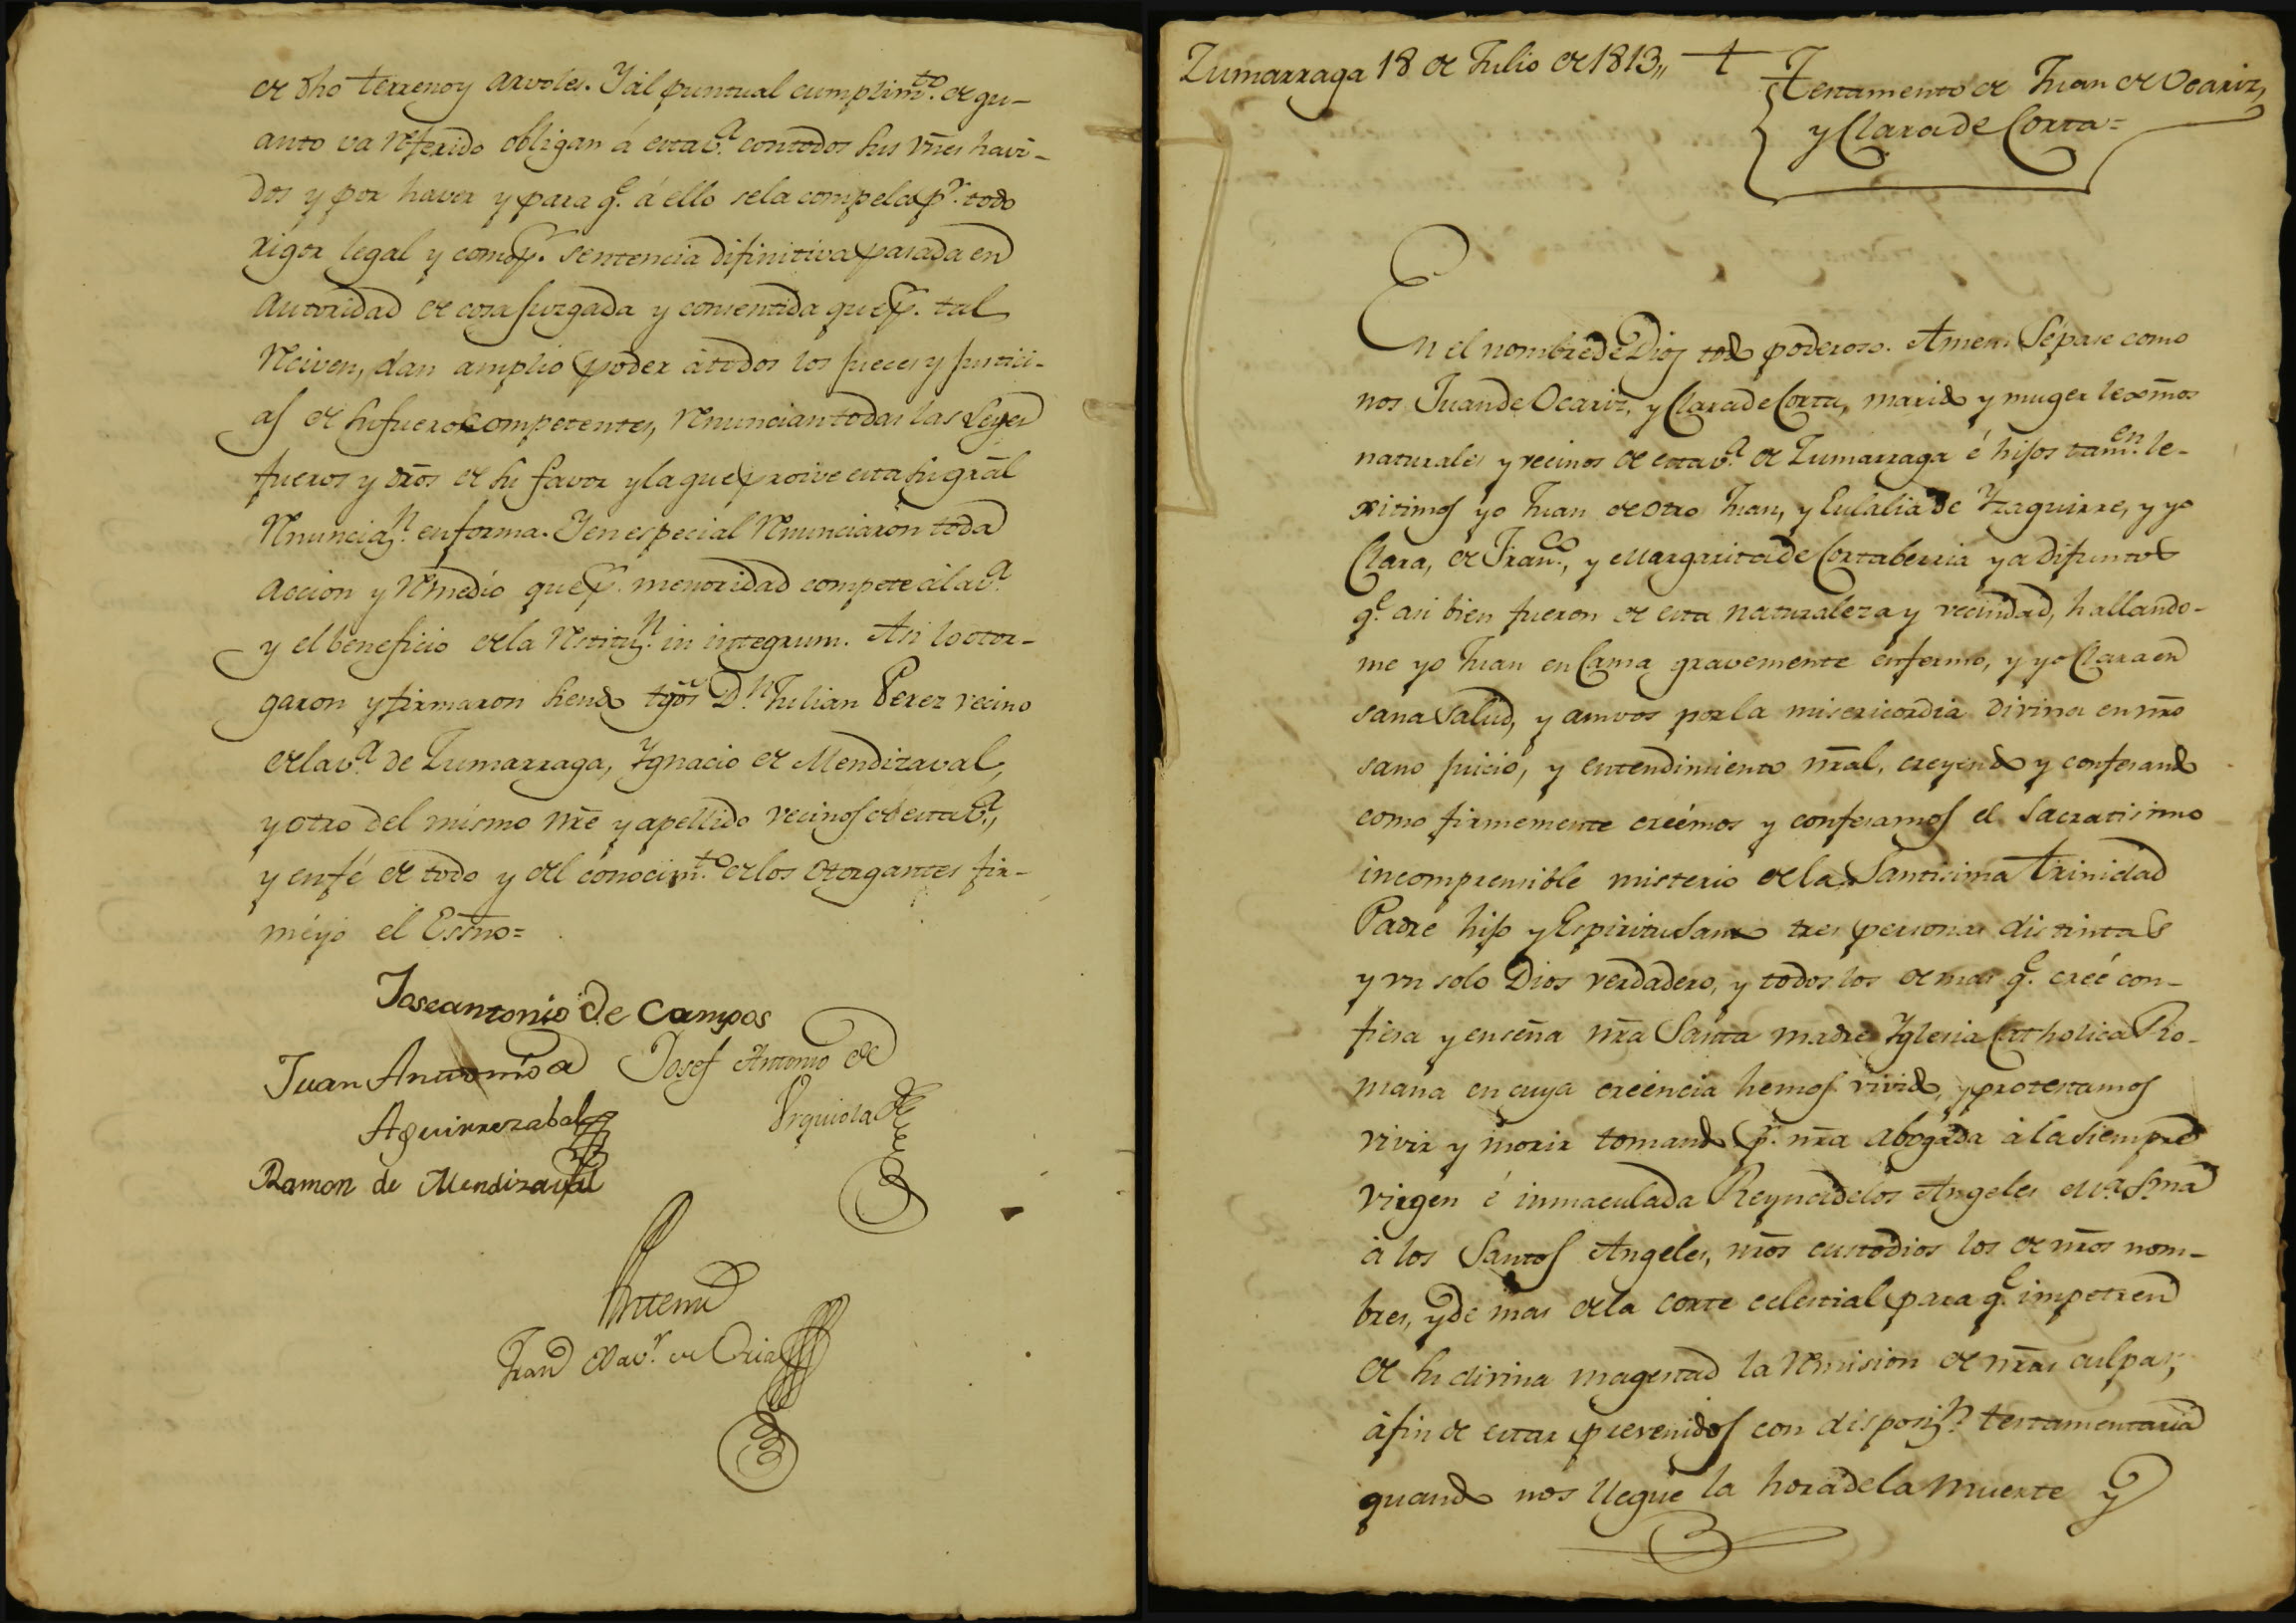 de dho terreno y arvoles. Y al puntual cumplimto. de qu-
anto va referido obligan á esta va. con todos sus vnes havi-
dos y por haver y para qe. á ello se la compela pr. todo
rigor legal y como pr. sentencia difinitiva pasada en
autoridad de cosa juzgada y consentida que pr. tal
reciven, dan amplio poder à todos los jueces y justici-
as de su fuero competentes, renuncian todas las Leyes
fueros y dros de su favor y la que proive esta su gral
renunciazn. en forma. Y en especial renunciaron toda
accion y remedio que pr. menoridad compete à la va.
y el beneficio de la restituzn. in integrum. Asi lo otor-
garon y firmaron siendo tgos Dn. Julian Perez vecino
de la va. de Zumarraga, Ygnacio de Mendizaval,
y otro del mismo nre y apellido vecinos de esta va.,
y en fé de todo y del conocimto. de los otorgantes fir-
mé yo el Essno=
Joseantonio de Campos
Juan Antonio de Josef Antonio de
Aguirrezabal Vrquiola
Ramon de Mendizaval
Antemi
Franco Xavr. de Oria
Zumarraga 18 de Julio de 1813,, †
Testamento de Juan de Ocariz,
y Clara de Corta=
En el nombre de Dios todo poderoso. Amen Sépase como
nos Juan de Ocariz, y Clara de Corta, marido y muger lexmos
naturales y vecinos de esta va. de Zumarraga é hijos tamen. le-
xitimos yo Juan de otro Juan, y Eulalia de Yzaguirre, y yo
Clara, de Franco., y Margarita de Cortaberria ya difuntos
qe. asi bien fueron de esta naturaleza y vecindad, hallando-
me yo Juan en Cama gravemente enfermo, y yo Clara en
sana salud, y amvos por la misericordia divina en nro
sano juicio, y entendimiento nral, creyendo y confesando
como firmemente creémos y confesamos el Sacratisimo
incomprensible misterio de la Santisima Trinidad
Padre hijo y Espiritu Santo tres personas distintas
y vn solo Dios verdadero, y todos los demas qe. creé con-
fiesa y enseña nra Santa madre Yglesia Catholica Ro-
mana en cuya creéncia hemos vivido, y protestamos
vivir y morir tomando pr. nra abogada à la siempre
virgen é inmaculada Reyna de los Angeles Ma. Sma
à los Santos Angeles, nros custodios los de nros nom-
bres, y de mas de la corte celestial para qe. impetren
de su divina magestad la remision de nras culpas,
àfin de estar prevenidos con disposizn. testamentaria
quando nos llegue la hora de la muerte y